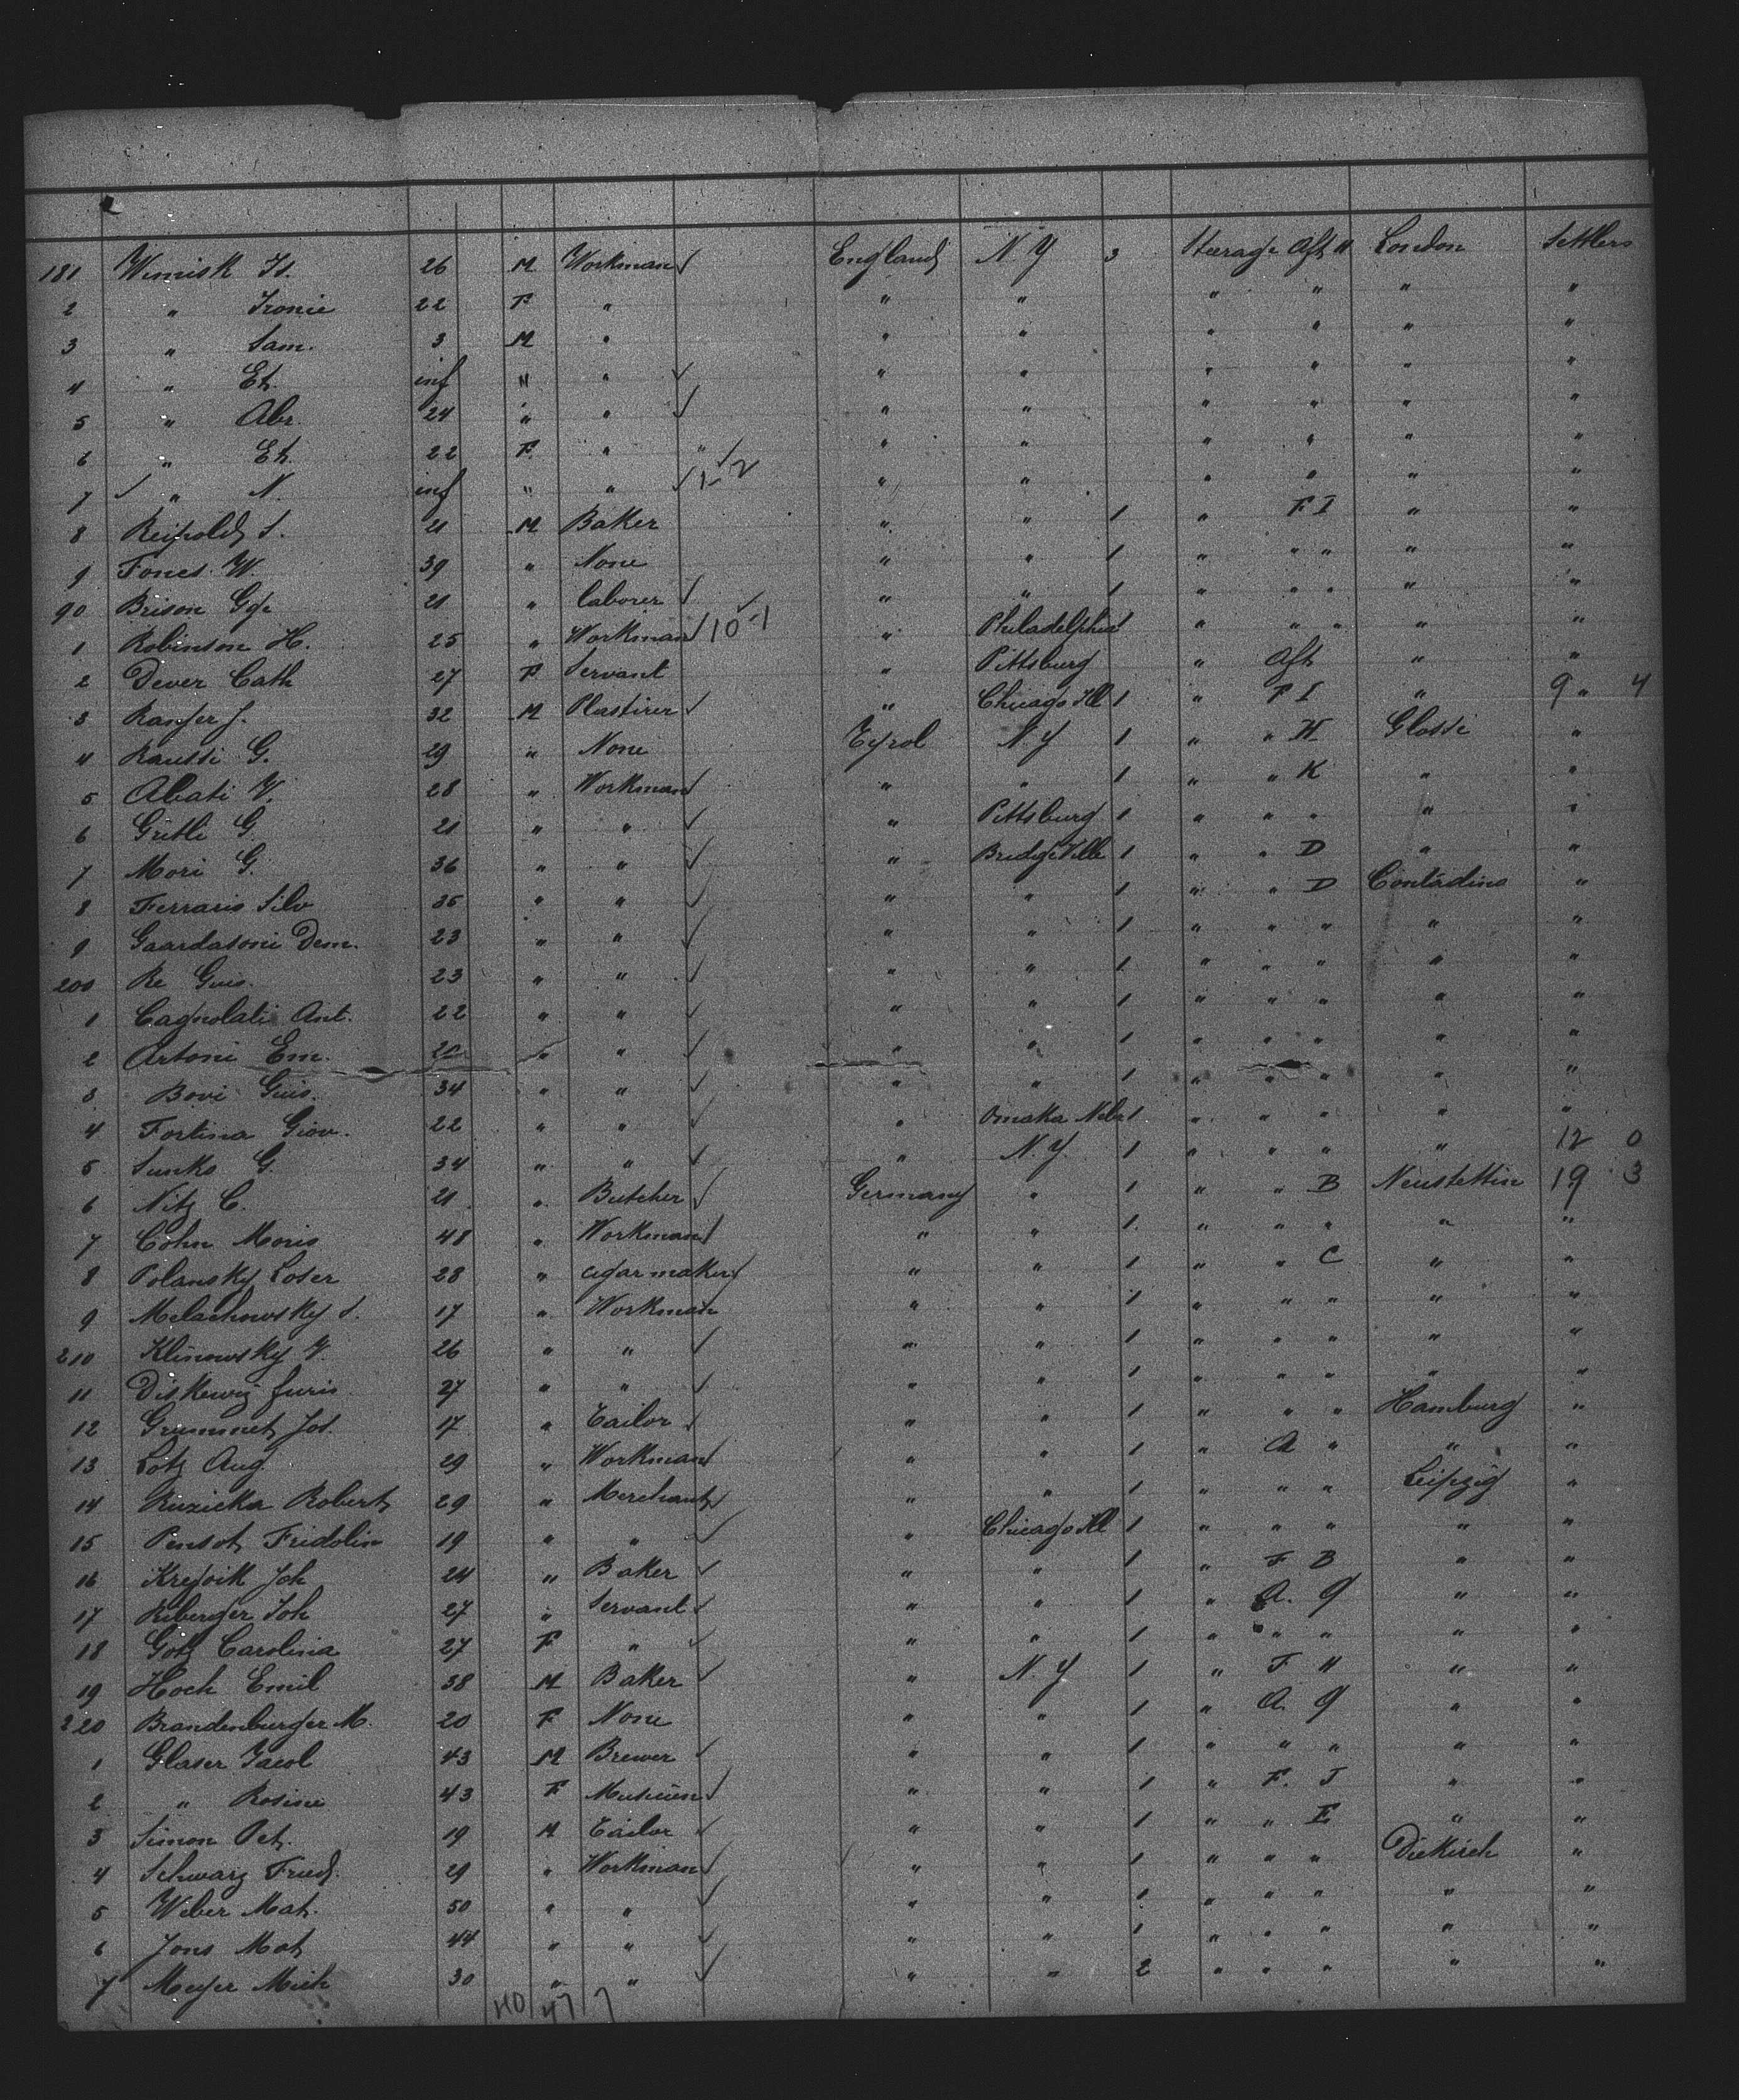 181 Winisk Is. 26 M Workman England N.Y 3 Steerage Aft H London Settlers
2 " Fronie 22 F " " " " " " "
3 " Sam. 3 M " " " " " " "
4 " Et. inf " " " " " " " "
5 " Abr. 24 " " " " " " " "
6 " Et. 22 F " " " " " " "
7 " N. inf " " 1-2 " " " " " "
8 Reipold S. 21 M Baker " " 1 " F I " "
9 Fones W. 39 " None " " 1 " " " " "
90 Brison Ge. 21 " laborer " " 1 " " " " "
1 Robinson H. 25 " Workman 10-1 " Philadelphia 1 " " " " "
2 Dever Cath 27 F Servant " Pittsburg " Aft " "
3 Ranger J. 32 M Plastirer " Chicago Ill 1 " F I " 9 " 4
4 Raussi G. 29 " None Tyrol N.Y 1 " " H Glossi "
5 Abati V. 28 " Workman " " 1 " " K " "
6 Gritli G. 21 " " " Pittsburg 1 " " " " "
7 Mori G. 36 " " " BridgeVille 1 " " D " "
8 Ferraris Silv 35 " " " " 1 " " D Contadino "
9 Gaardasoni Dem. 23 " " " " 1 " " " " "
200 Re Guis. 23 " " " " 1 " " " " "
1 Cagnolati Ant. 22 " " " " 1 " " " " "
2 Artoni Em. " " " " 1 " " " " "
3 Bovi Guis. 34 " " " " 1 " " " " "
4 Fortina Giov. 22 " " " Omaka Nebr 1 " " " " "
5 Sunko G. 34 " " " N.Y. 1 " " " " 12 0
6 Nitz C. 21 " Butcher Germany " 1 " " B Neustettin 19 3
7 Cohn Moris 48 " Workman " " 1 " " " " "
8 Polansky Loser 28 " cigar maker " " 1 " " C " "
9 Melachowsky S. 17 " Workman " " 1 " " " " "
210 Klinowsky V. 26 " " " " 1 " " " " "
11 Diskewiz Juris 27 " " " " 1 " " " " "
12 Grummet Jos. 17 " Tailor " " 1 " " " Hamburg "
13 Lotz Aug. 29 " Workman " " 1 " A " " "
14 Ruzicka Robert 29 " Merchant " " 1 " " " Leipzig "
15 Pensot Fridolin 19 " " " Chicago Ill 1 " " " " "
16 Krepsik Joh 24 " Baker " " 1 " F B " "
17 Riberger Joh 27 " Servant " " 1 " A. G " "
18 Gotz Carolina 27 F " " " 1 " " " " "
19 Hoch Emil 38 M Baker " N.Y 1 " F H " "
220 Brandenburger M. 20 F None " " 1 " A G " "
1 Glaser Jacob 43 M Brewer " " 1 " " " " "
2 " Rosine 43 F " " 1 " F. J " "
3 Simon Pet. 19 M Tailor " " 1 " " E " "
4 Schwarz Fried. 29 " Workman " " 1 " " " Diekirch "
5 Weber Mat. 50 " " " " 1 " " " " "
6 Jons Mat 44 " " " " 1 " " " " "
7 Meyer Mich 30 " " " " 2 " " " " "
40 47 7